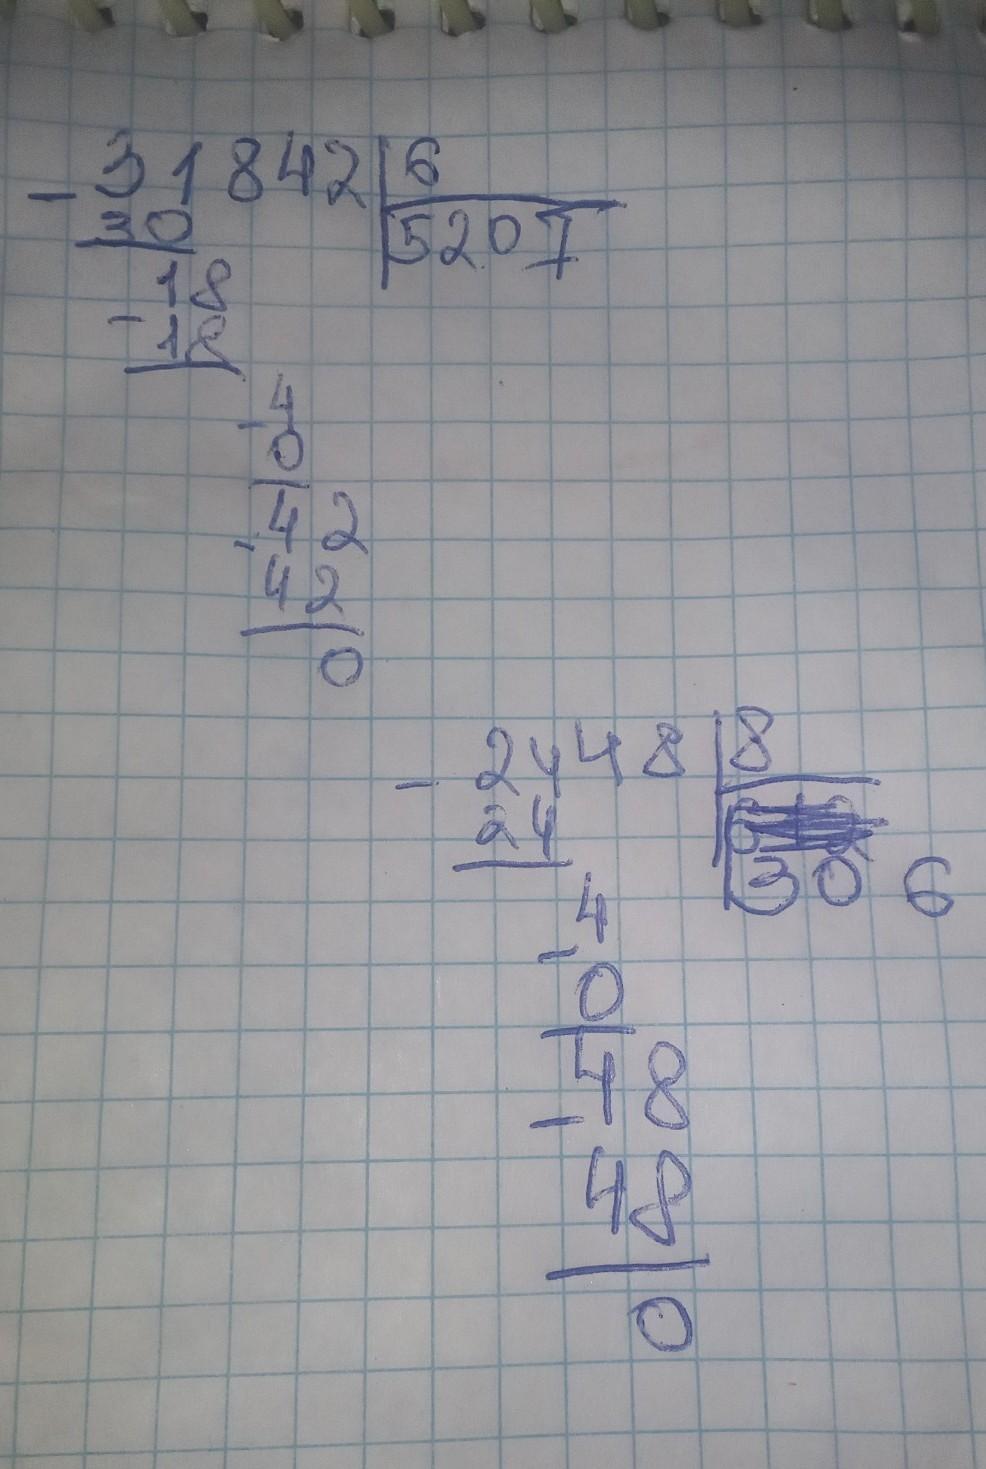 - 31 842 | 6
30 | 5207
18
- 18
4
- 0
42
- 42
0
- 2448 | 8
24
306
4
- 0
48
- 48
0